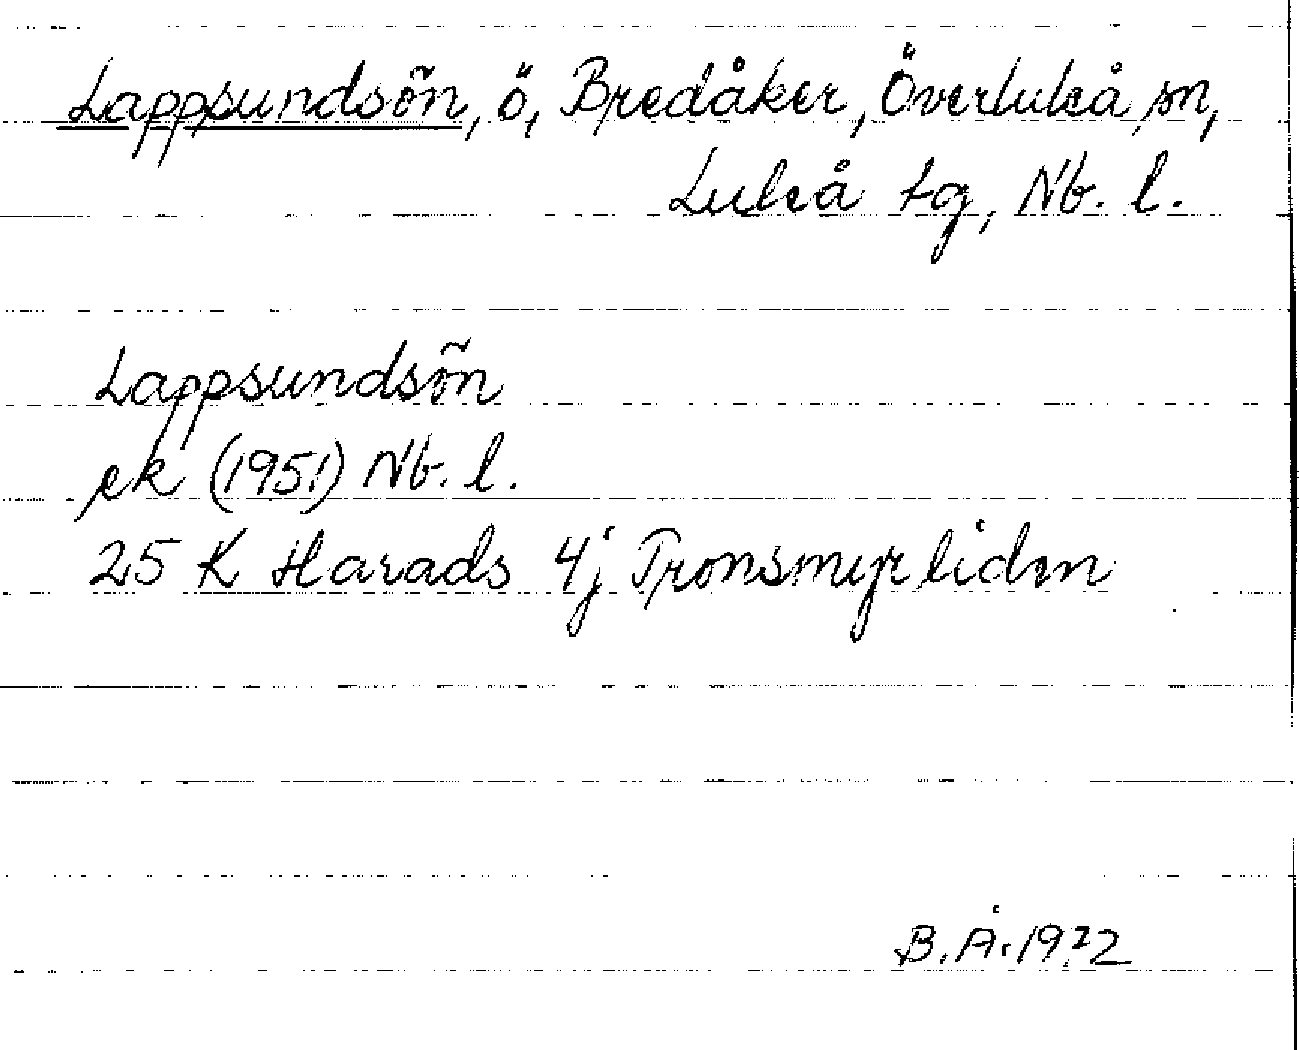 Lappsundsön, ö, Bredåker, Överluleå sn,
Luleå tg, Nb. l.
Lappsundsön
ek (1951) Nb. l.
25 K Harads 4j Tronsmyrliden
B. Å. 1972